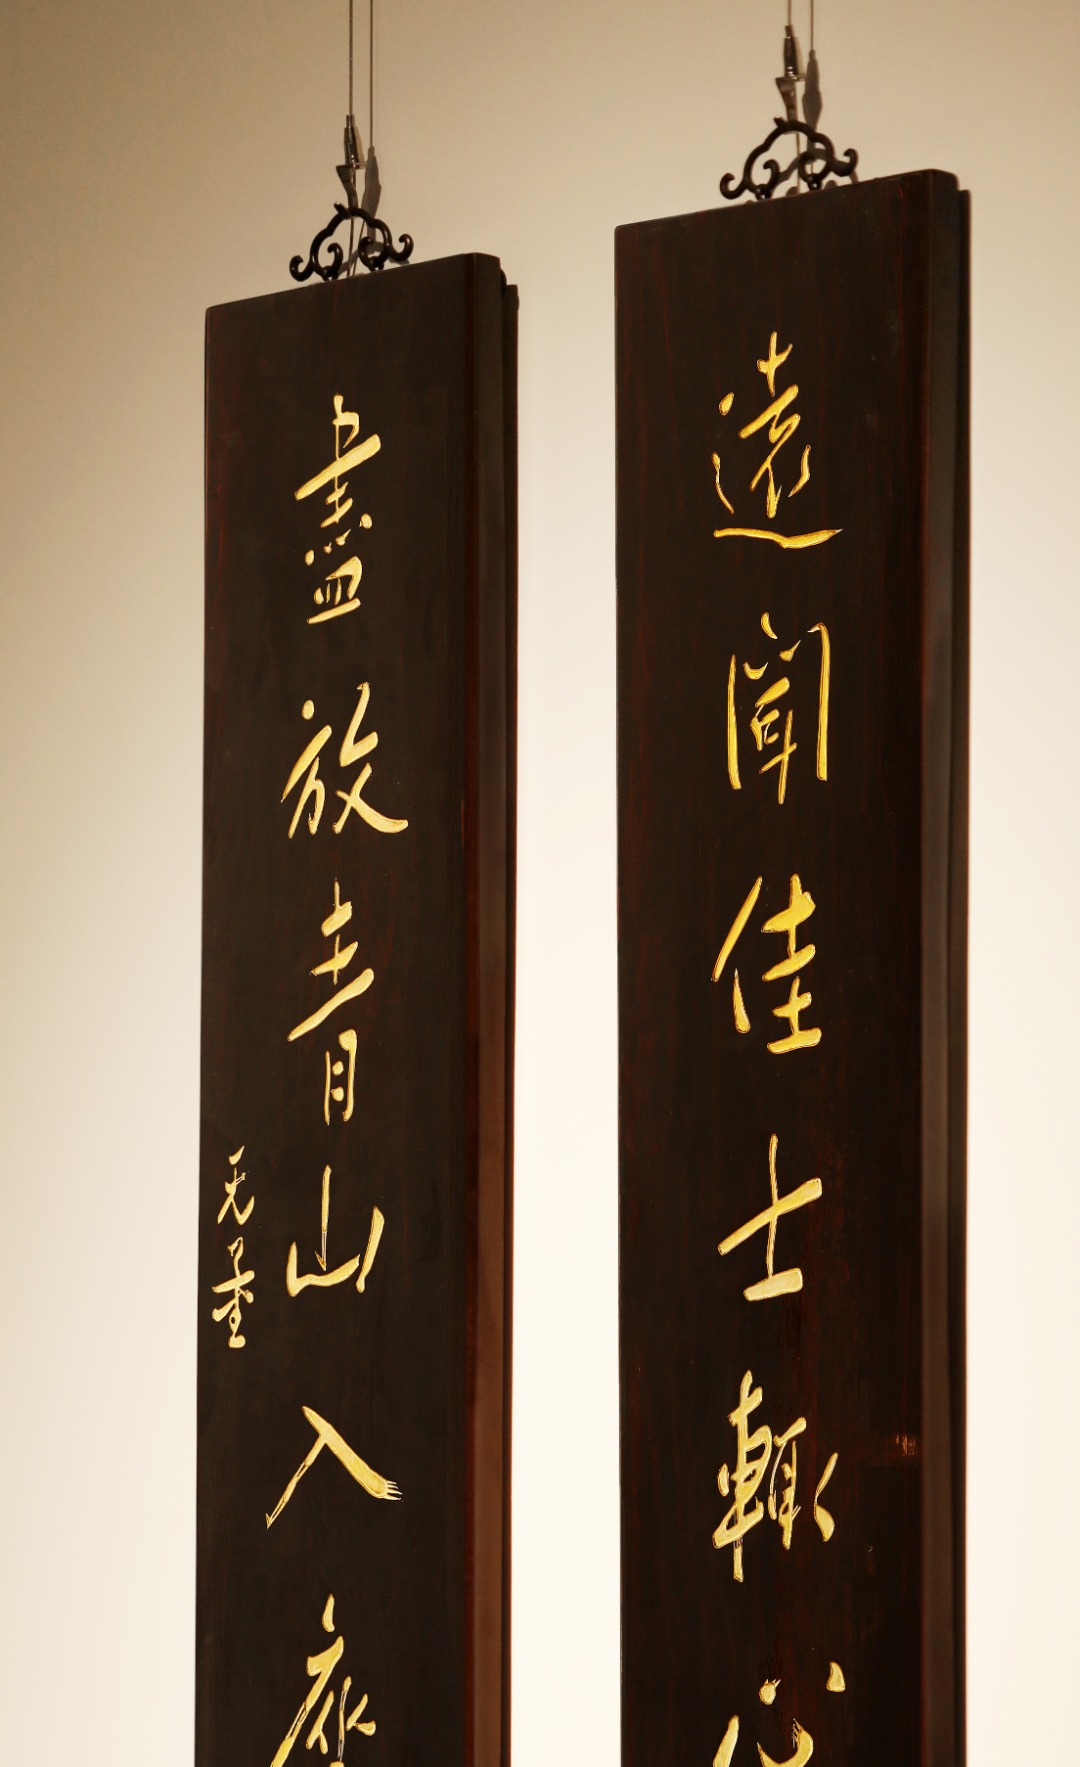 遠聞佳士輒心
盡放青山入座
无量